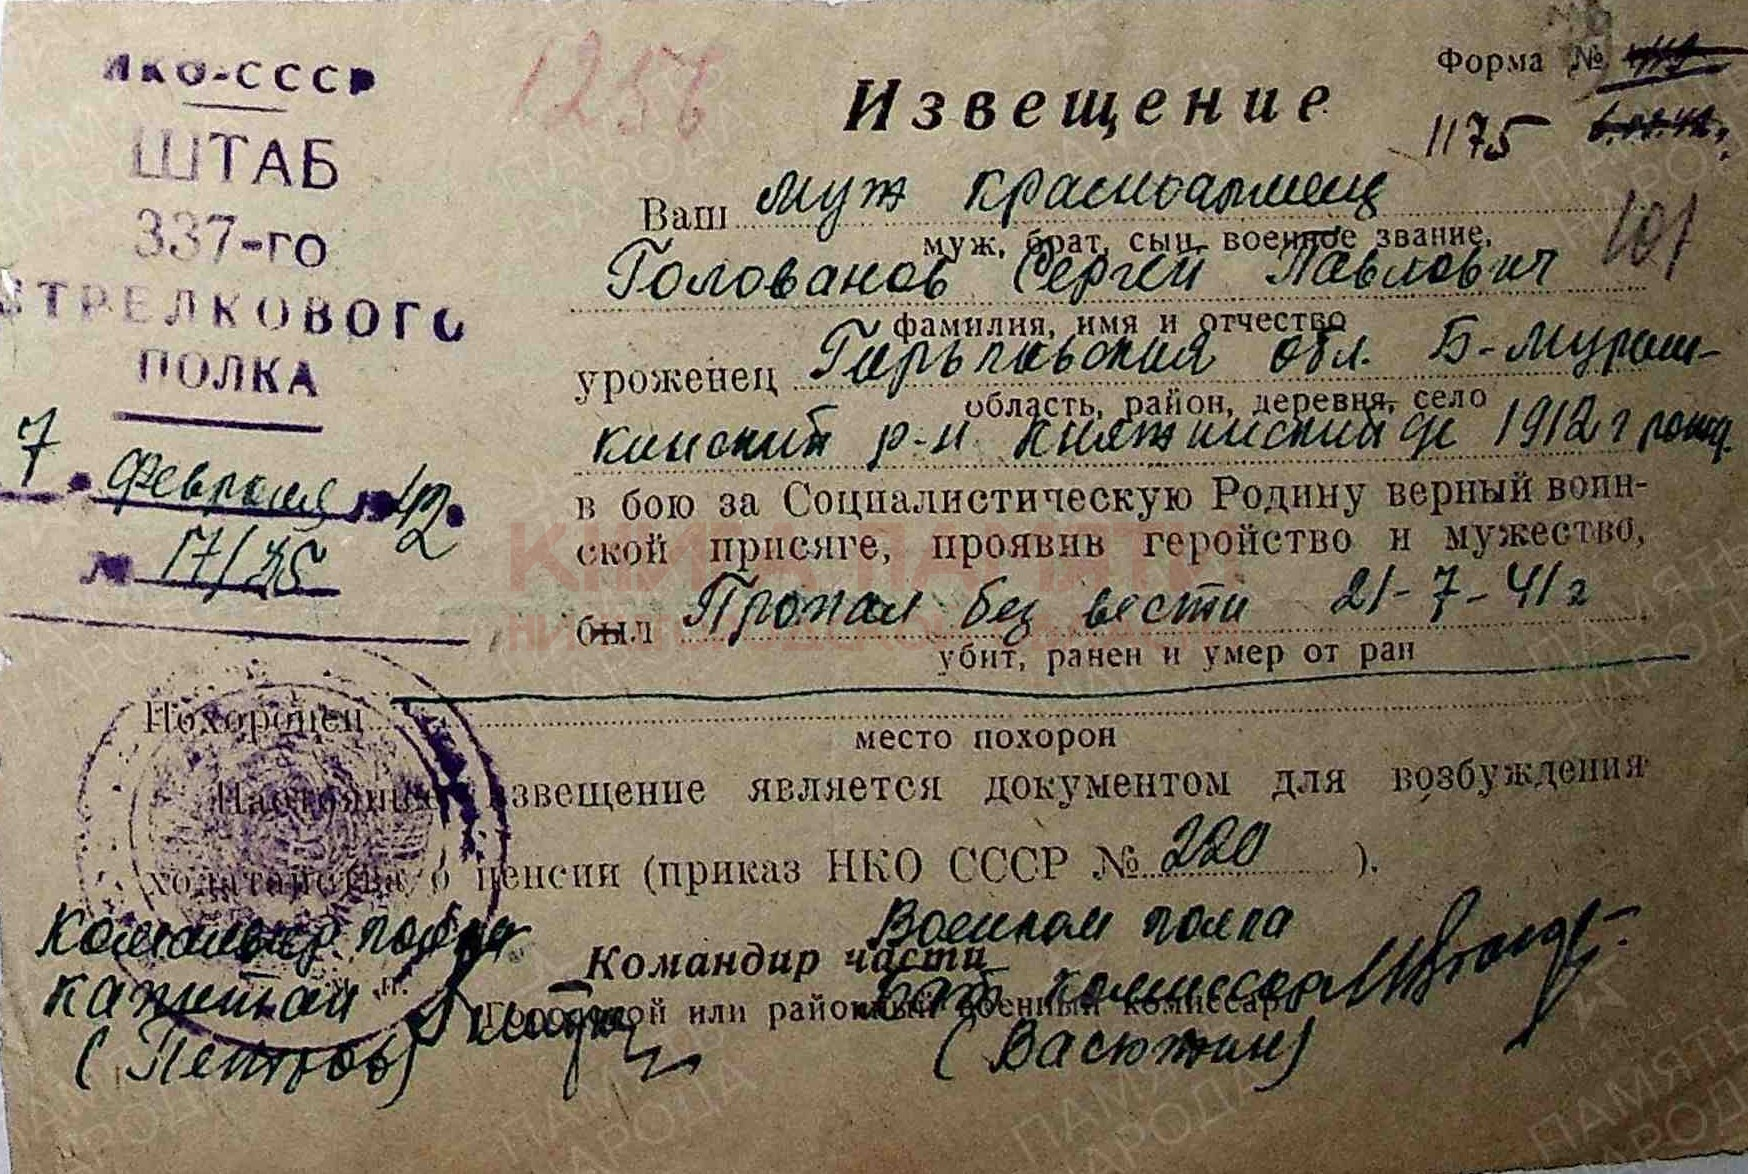 НКО-СССР
ШТАБ
337-го
СТРЕЛКОВОГО
ПОЛКА
7 февраля 42
№ 17/25
1256
Форма №
1175
101
Извещение
Ваш муж красноармеец
муж, брат, сын, военное звание,
Голованов Сергей Павлович
фамилия, имя и отчество
уроженец Горьковская обл. Б-Мураш-
область, район, деревня, село
кинский р-н Княжинский 1912 г рожд.
в бою за Социалистическую Родину верный воин-
ской присяге, проявив геройство и мужество,
был Пропал без вести 21-7-41 г
убит, ранен и умер от ран
Похоронен
место похорон
Настоящее извещение является документом для возбуждения
ходатайства о пенсии (приказ НКО СССР № 220 ).
Командир полка
капитан
(Петров)
Военком полка
Командир части
бат комиссар
Городской или районный военный комиссар
(Васюткин)
КНИГА ПАМЯТИ
НИЖЕГОРОДСКОЙ ОБЛАСТИ
ПАМЯТЬ НАРОДА